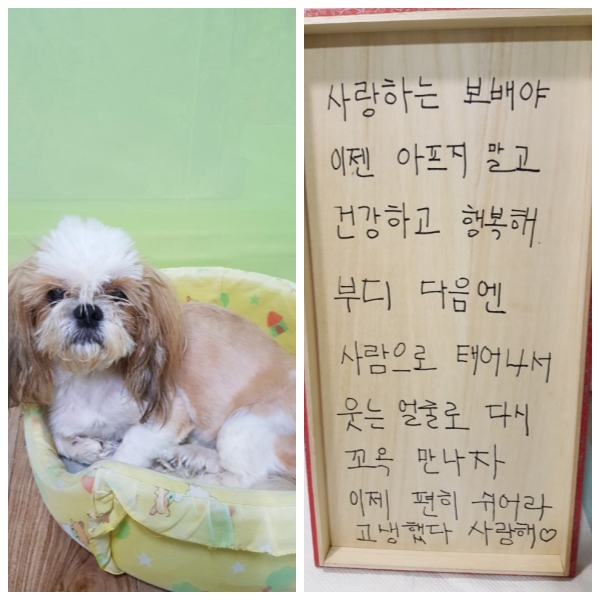 사랑하는 보배야
이젠 아프지 말고
건강하고 행복해.
부디 다음엔
사람으로 태어나서
웃는 얼굴로 다시
꼬옥 만나자
이제 편히 쉬어라
고생했다 사랑해♡